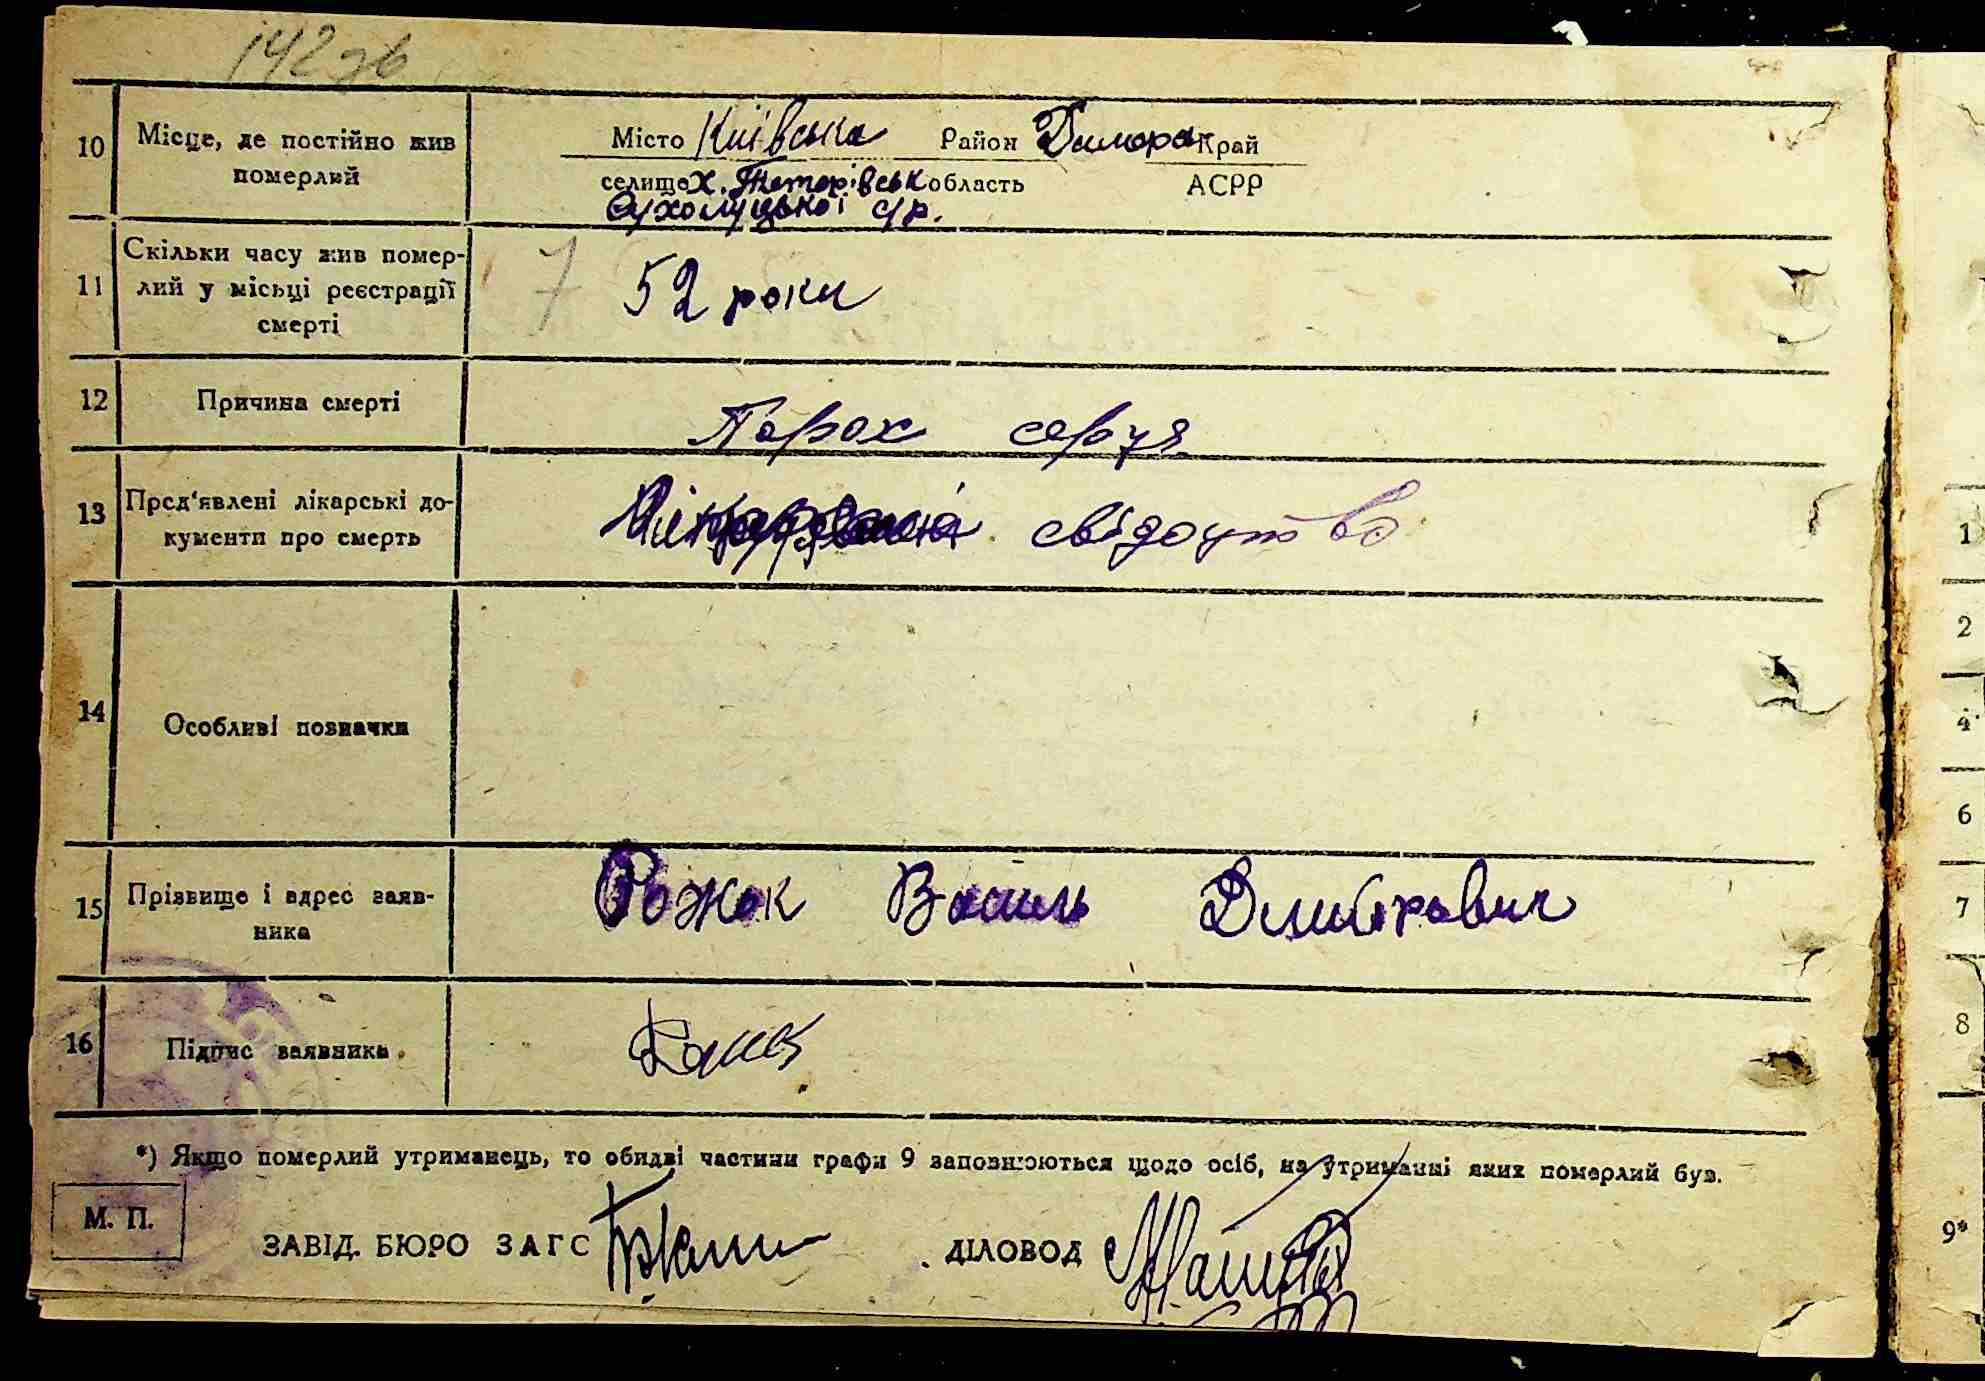 142 зв
10 Місце, де постійно жив померлий
Місто Київська Район Димерск Край
селище х. Тетерівськ область АСРР
Сухолуцької с/р.
11 Скільки часу жив помер-
лий у місьці реєстрації
смерті
7 52 роки
12 Причина смерті Порок серця
13 Пред'явлені лікарські до-
кументи про смерть
свідоцтво
14 Особливі позначки
15 Прізвище і адрес заяв-
ника
Рожок Василь Дмитрович
16 Підпис заявника
*) Якщо померлий утриманець, то обидві частини графи 9 заповнюються щодо осіб, на утриманні яких померлий був.
М. П.
ЗАВІД. БЮРО ЗАГС ДІЛОВОД
1
2
4
6
7
8
9*